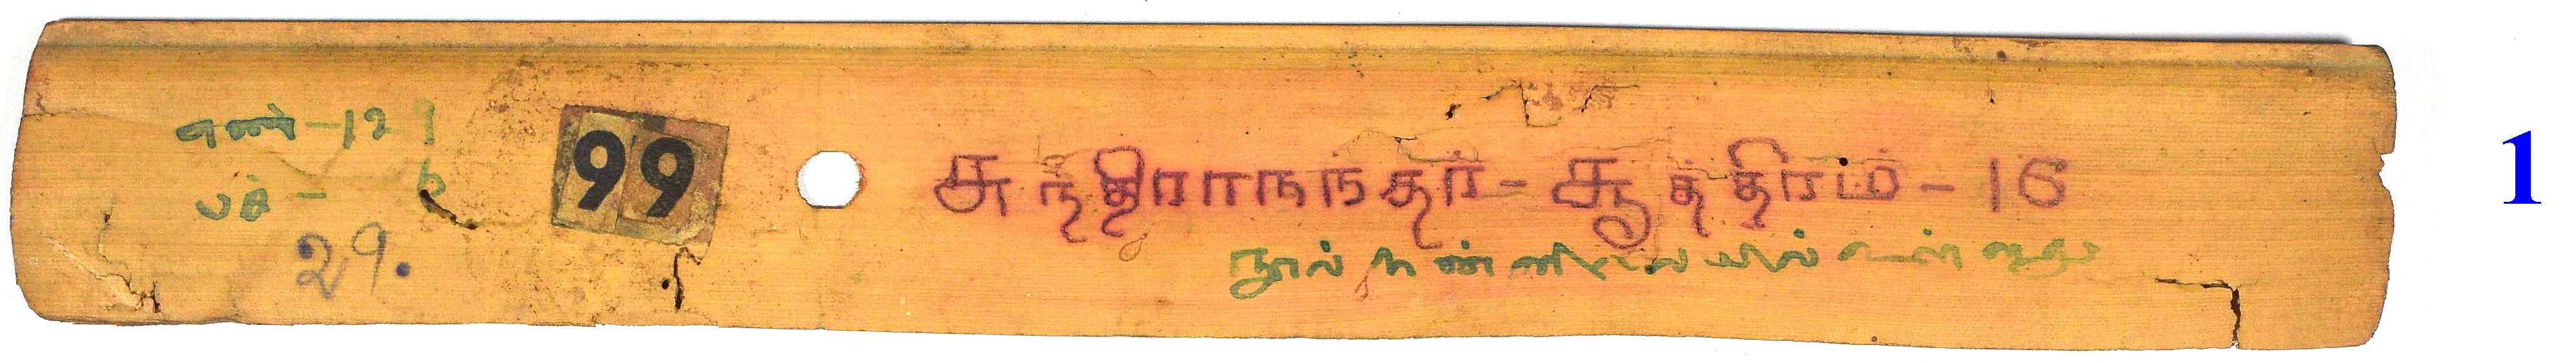 எண் - 12
பக் - 6
29.
99
சுந்திரானந்தர் - சூத்திரம் - 16
நூல் நன்னிலையில் உள்ளது
1